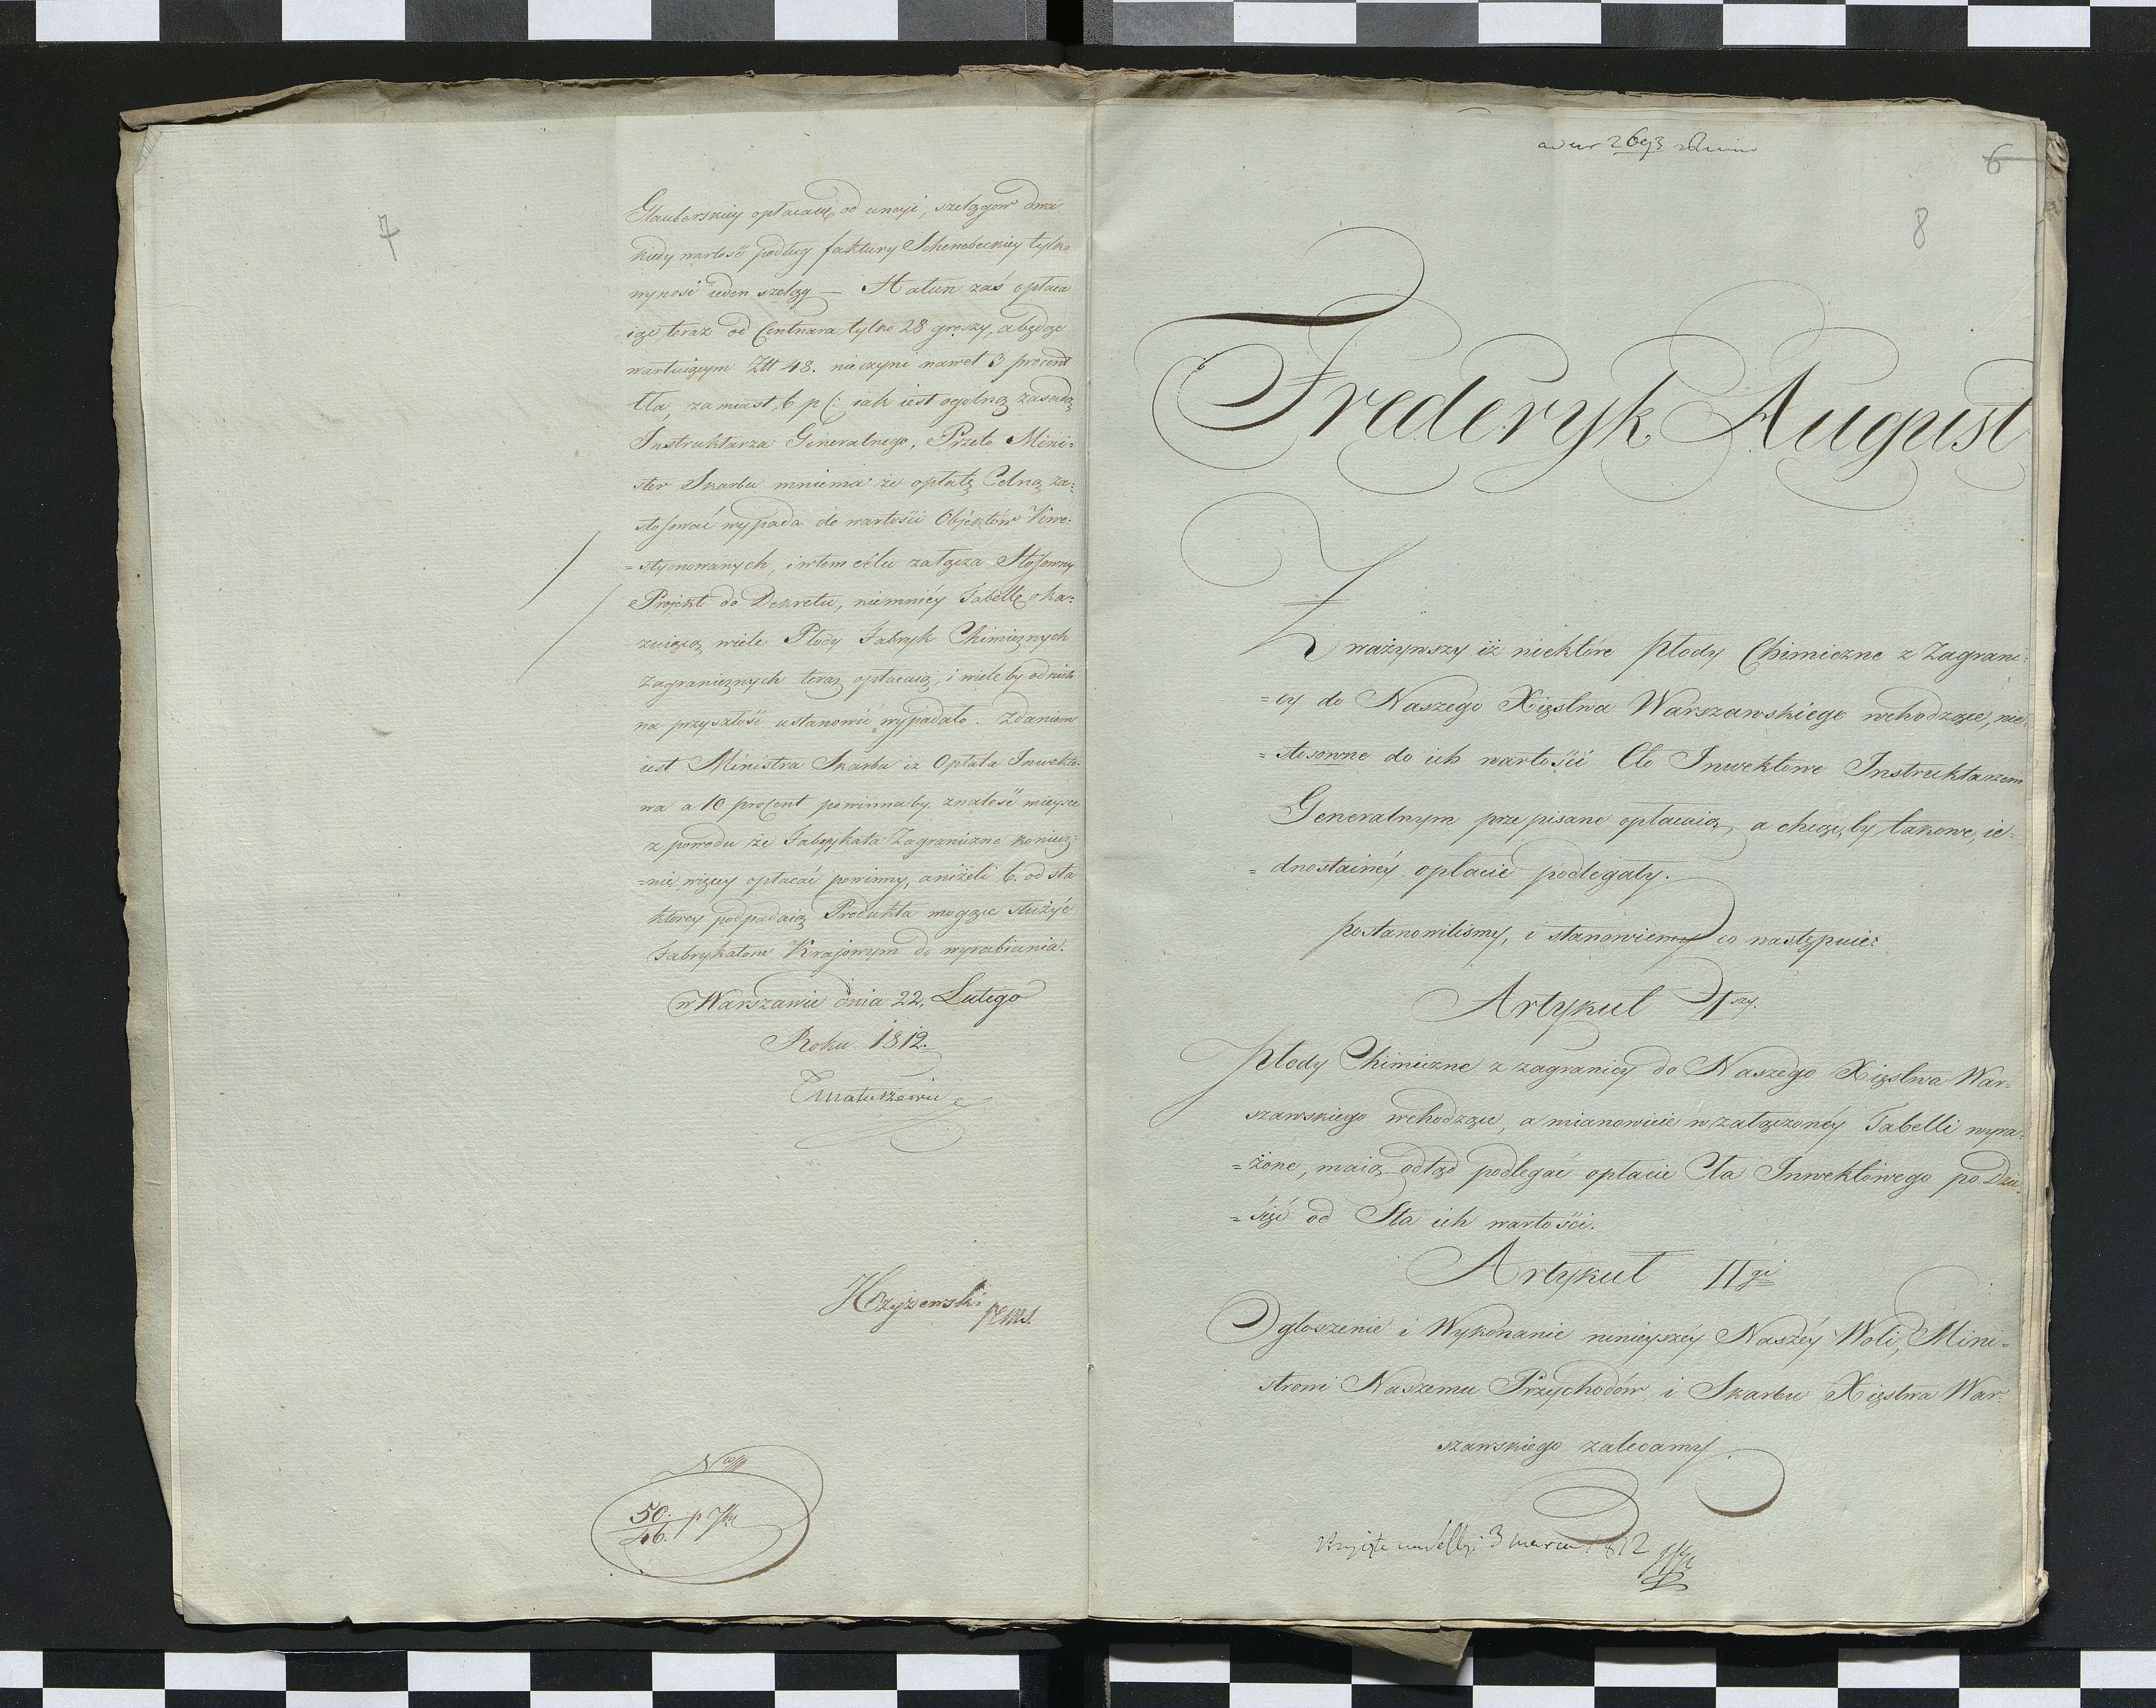 7
Glauberskiey opłacaią od uncyi, szelągow dwa
kiedy wartość podług faktury Schenebeckiey tylko
wynosi ieden szeląg — Hałun zaś opłaca
iąc teraz od Centnara tylko 28 groszy, a będąc
wartuiącym Złt 48. nie czyni nawet 3 procent
Cła, zamiast 6 p C: iak iest ogolną zasadą
Instruktarza Generalnego, Przeto Mini-
ster Skarbu mniema że opłatę Celną za-
stosować wypada do wartości Objektów Kwe-
=styonowanych, i w tem celu załącza Stosowny
Projekt do Dekretu, niemniéy Tabellę oka-
zuiącą wiele Płody Fabryk Chimicznych
Zagranicznych teraz opłacaią, i wiele by od nich
na przyszłość ustanowić wypadało. Zdaniem
iest Ministra Skarbu iż Opłata Inwekto-
wa a 10 procent powinna by znaleść mieysce
z powodu że Fabrykata Zagraniczne koniecz-
=nie więcey opłacać powinny, aniżeli 6. od sta
ktorey podpadaią Produkta mogące służyć
Fabrykatom Kraiowym do wyrabiania.
w Warszawie dnia 22. Lutego
Roku 1812.
TMatuszewic
50.
46.
6
8
Frederyk August
Zważywszy iż niektóre płody Chimiczne z Zagrani-
=cy do Naszego Xięstwa Warszawskiego wchodzące, nie-
=stosowne do ich wartości Cło Inwektowe Instruktarzem
Generalnym przepisane opłacaią, a chcąc, by takowe, ie-
=dnostainéy opłacie podlegały.
postanowiliśmy, i stanowiemy co następuie:
Artykuł Iszy.
Płody Chimiczne z zagranicy do Naszego Xięstwa War-
szawskiego wchodzące, a mianowicie w załączonéy Tabelli wyra-
=żone, maią odtąd podlegać opłacie Cła Inwektowego po Dzie-
=sięć od Sta ich wartości.
Artykuł IIgi
Ogłoszenie i Wykonanie ninieyszéy Naszéy Woli, Mini-
strowi Naszemu Przychodów i Skarbu Xięstwa War-
szawskiego zalecamy
3 marca 1812